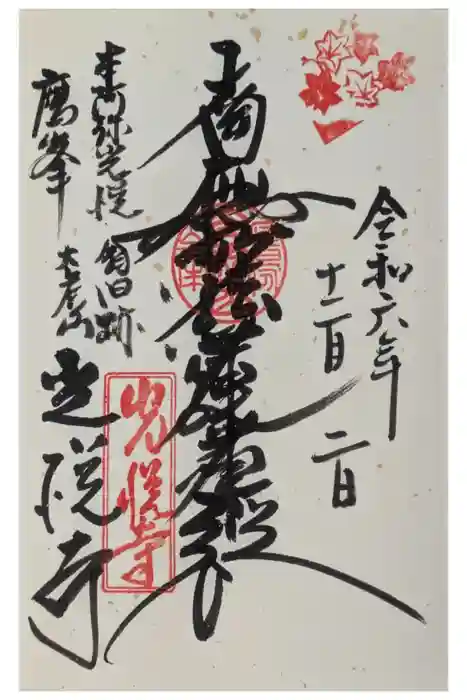 令和六年
十二月二日
南無妙法蓮華経
本阿弥光悦
翁旧跡
鷹峯
大虚山
光悦寺
光悦寺